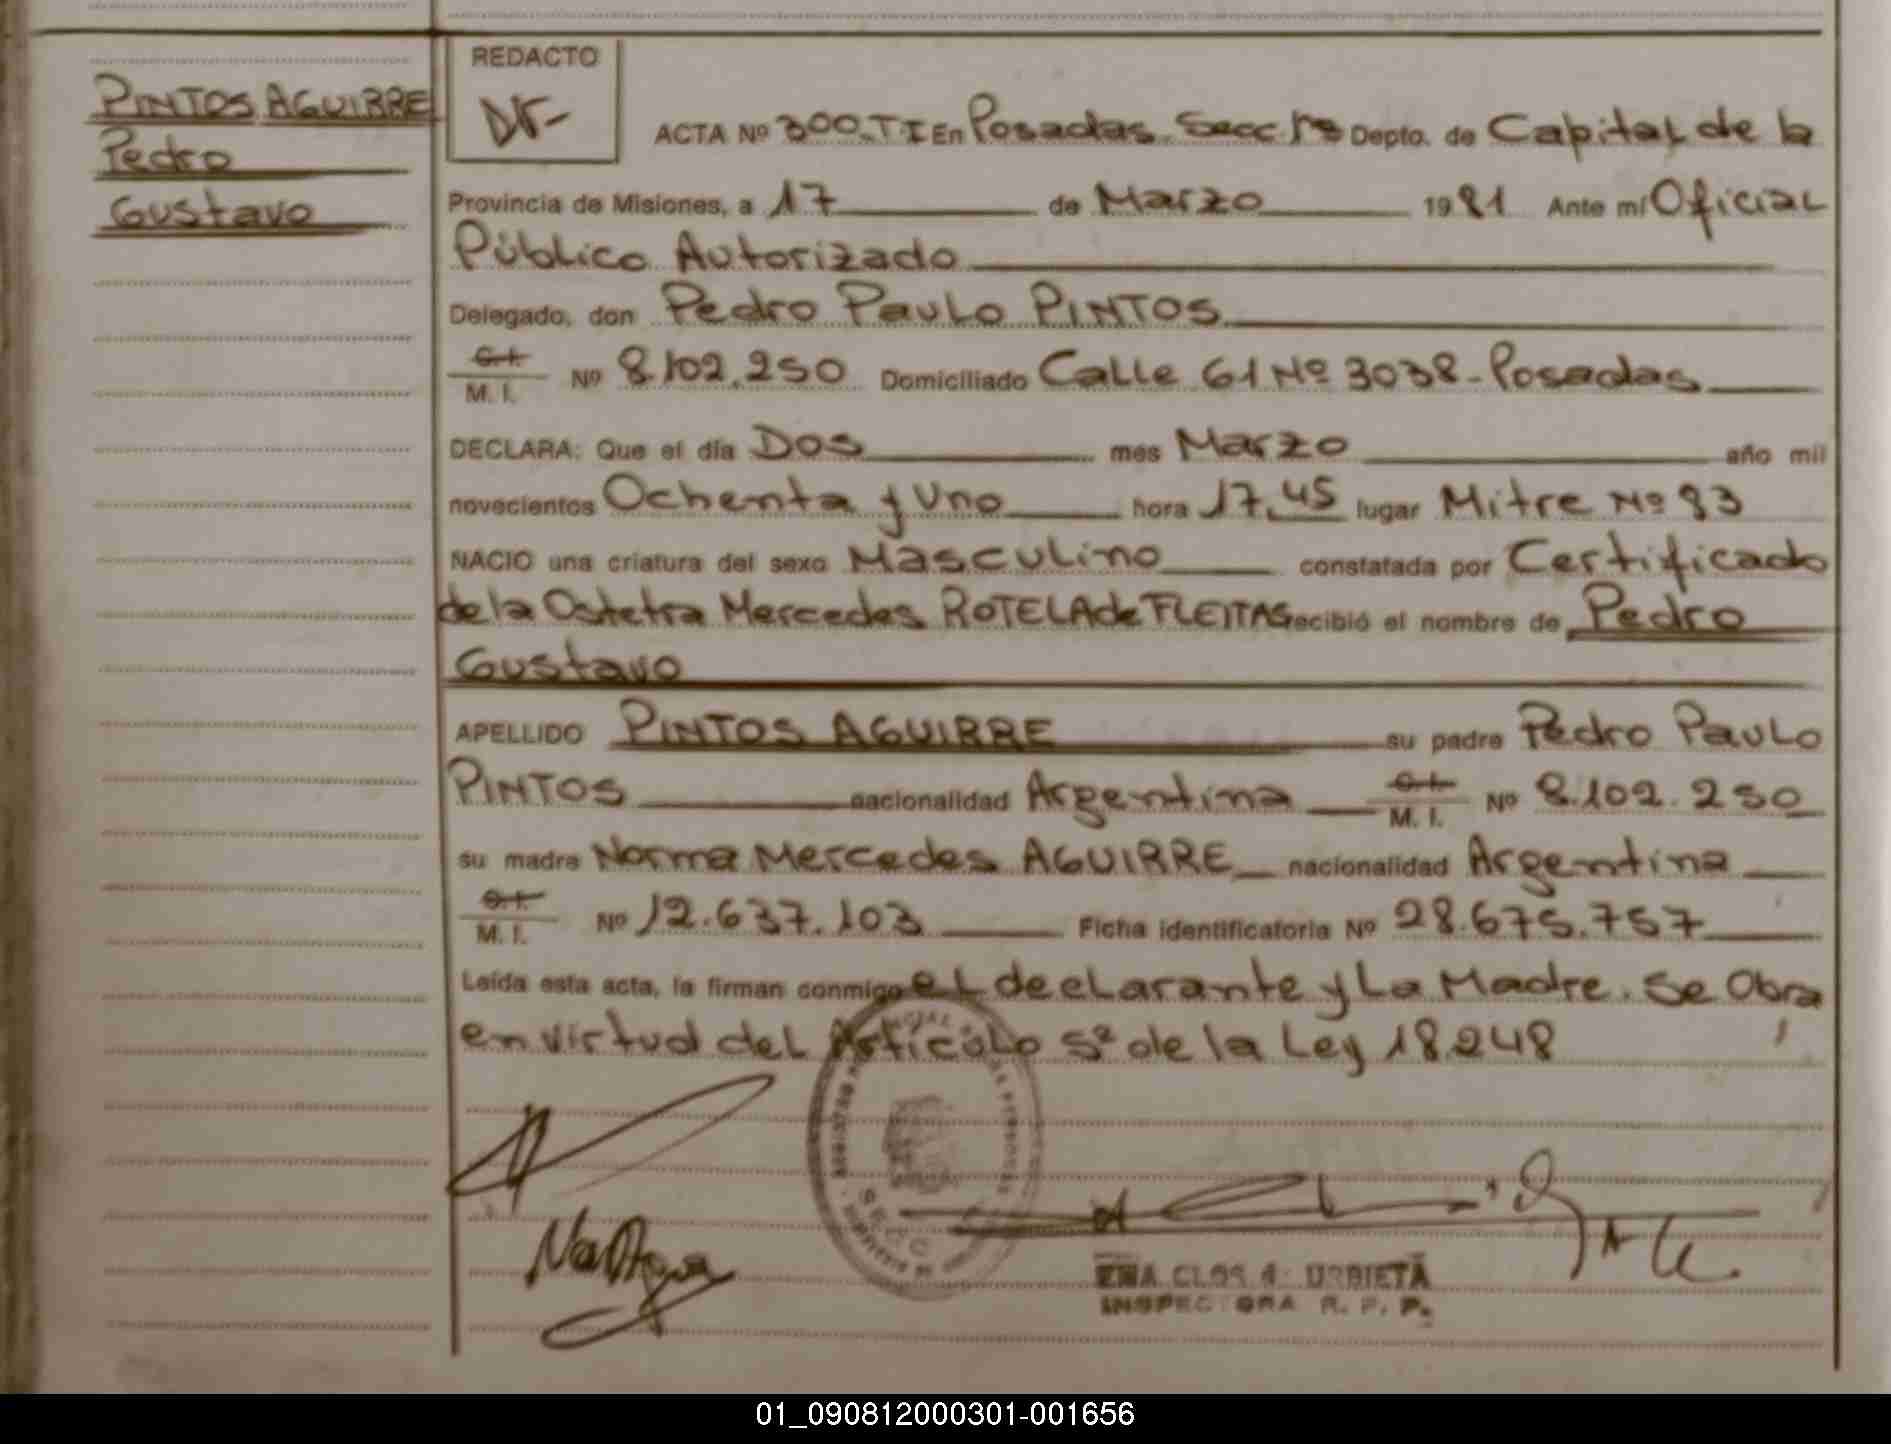 PINTOS AGUIRRE
Pedro
Gustavo
REDACTO
ACTA Nº 300.T.I En Posadas Secc 1ª Depto. de Capital de la
Provincia de Misiones, a 17 de Marzo 1981 Ante mí Oficial
Público Autorizado
Delegado, don Pedro Paulo PINTOS
C.I.
M. I. Nº 8.102.250 Domiciliado Calle 61 Nº 3038-Posadas
DECLARA: Que el día Dos mes Marzo año mil
novecientos Ochenta y Uno hora 17,45 lugar Mitre Nº 83
NACIO una criatura del sexo Masculino constatada por Certificado
de la Ostetra Mercedes ROTELA de FLEITAS recibió el nombre de Pedro
Gustavo
APELLIDO PINTOS AGUIRRE su padre Pedro Paulo
PINTOS nacionalidad Argentina C.I. M. I. Nº 8.102.250
su madre Norma Mercedes AGUIRRE nacionalidad Argentina
C.I.
M. I. Nº 12.637.103 Ficha identificatoria Nº 28.675.757
Leída esta acta, la firman conmigo el declarante y La Madre. Se Obra
en virtud del Artículo 5º de la Ley 18248
URBIETA
INSPECTORA R. P. P.
01_090812000301-001656